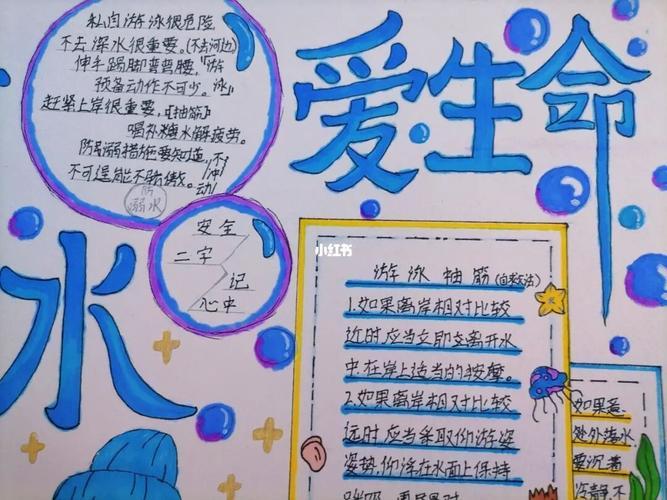 私自游泳很危险
不去深水很重要。(不去河边)
伸手踢脚弯弯腰，"游
预备动作不可少。泳"
赶紧上岸很重要，【抽筋】
喝补糖水解疲劳。
防溺措施要知道，不
不可逞能不骄傲。冲动
防
溺水
安全
二字
记
心中
爱生命
水
小红书
游泳抽筋(自救方法)
1.如果离岸相对比较
近时应当立即离开水
中在岸上适当的按摩。
2.如果离岸相对比较
远时应当采取仰游姿
姿势，仰浮在水面上保持
如果意
处外落水
要沉着
冷静，不